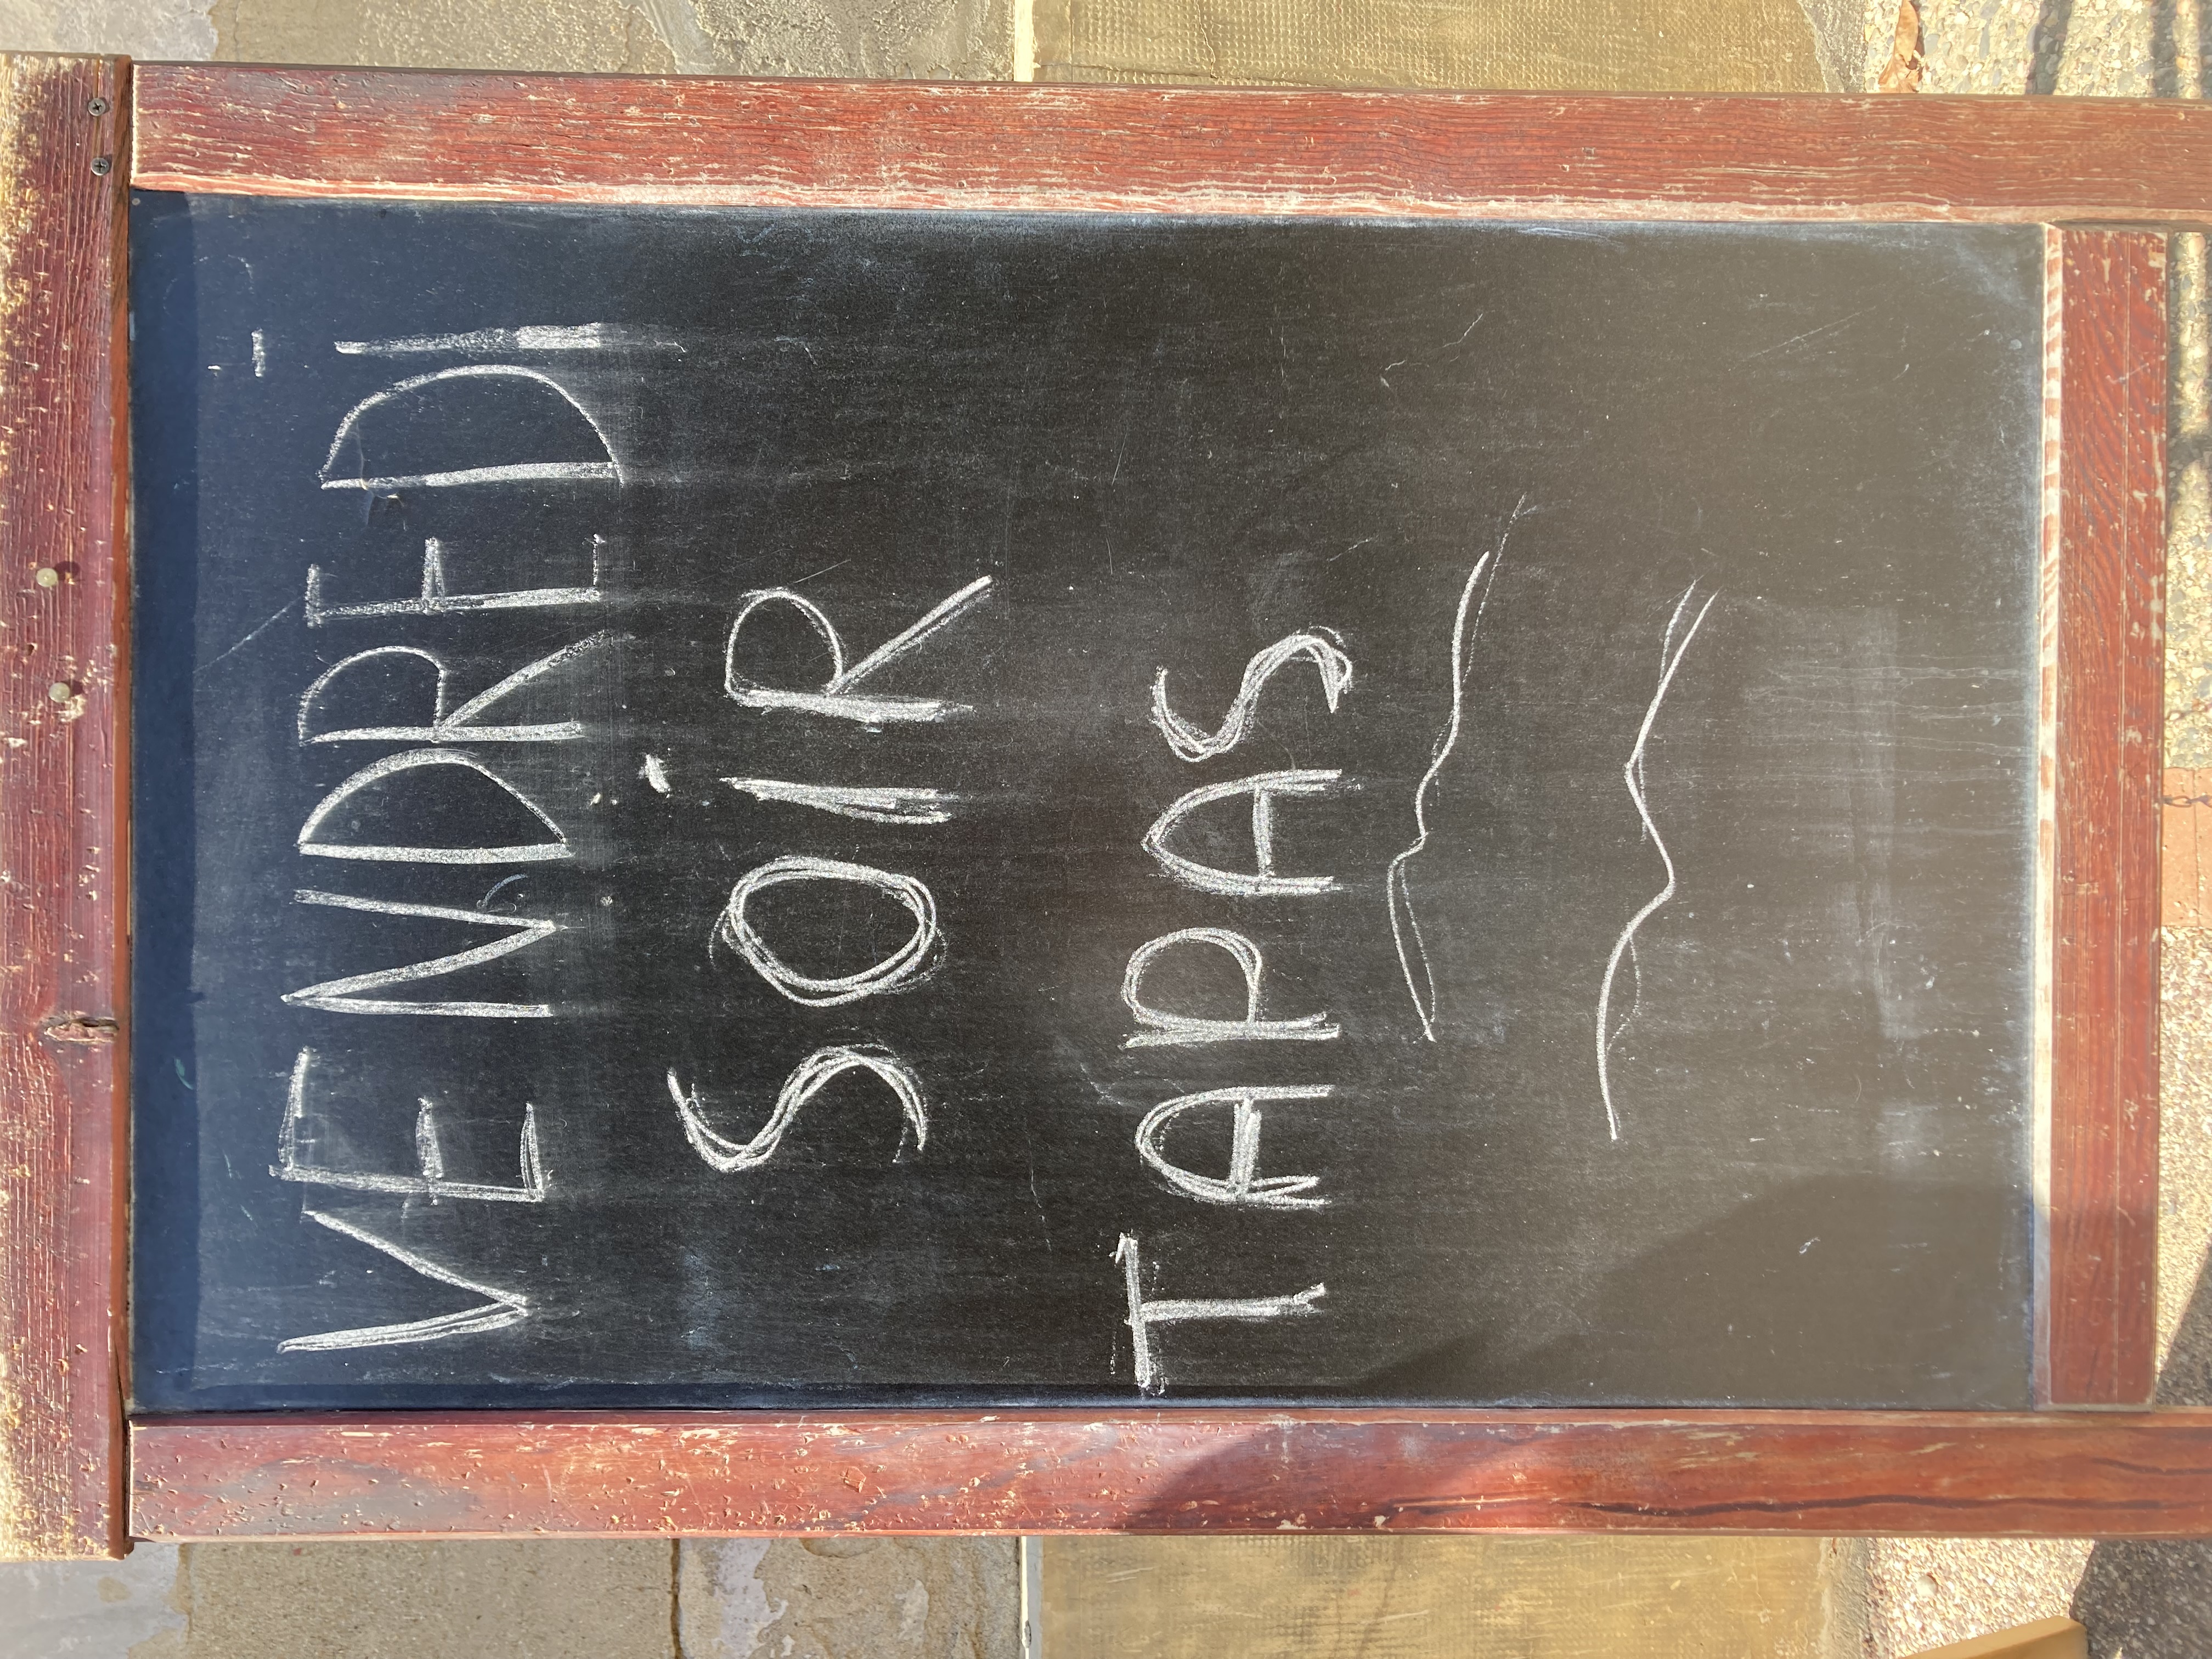 VENDREDI
SOIR
TAPAS